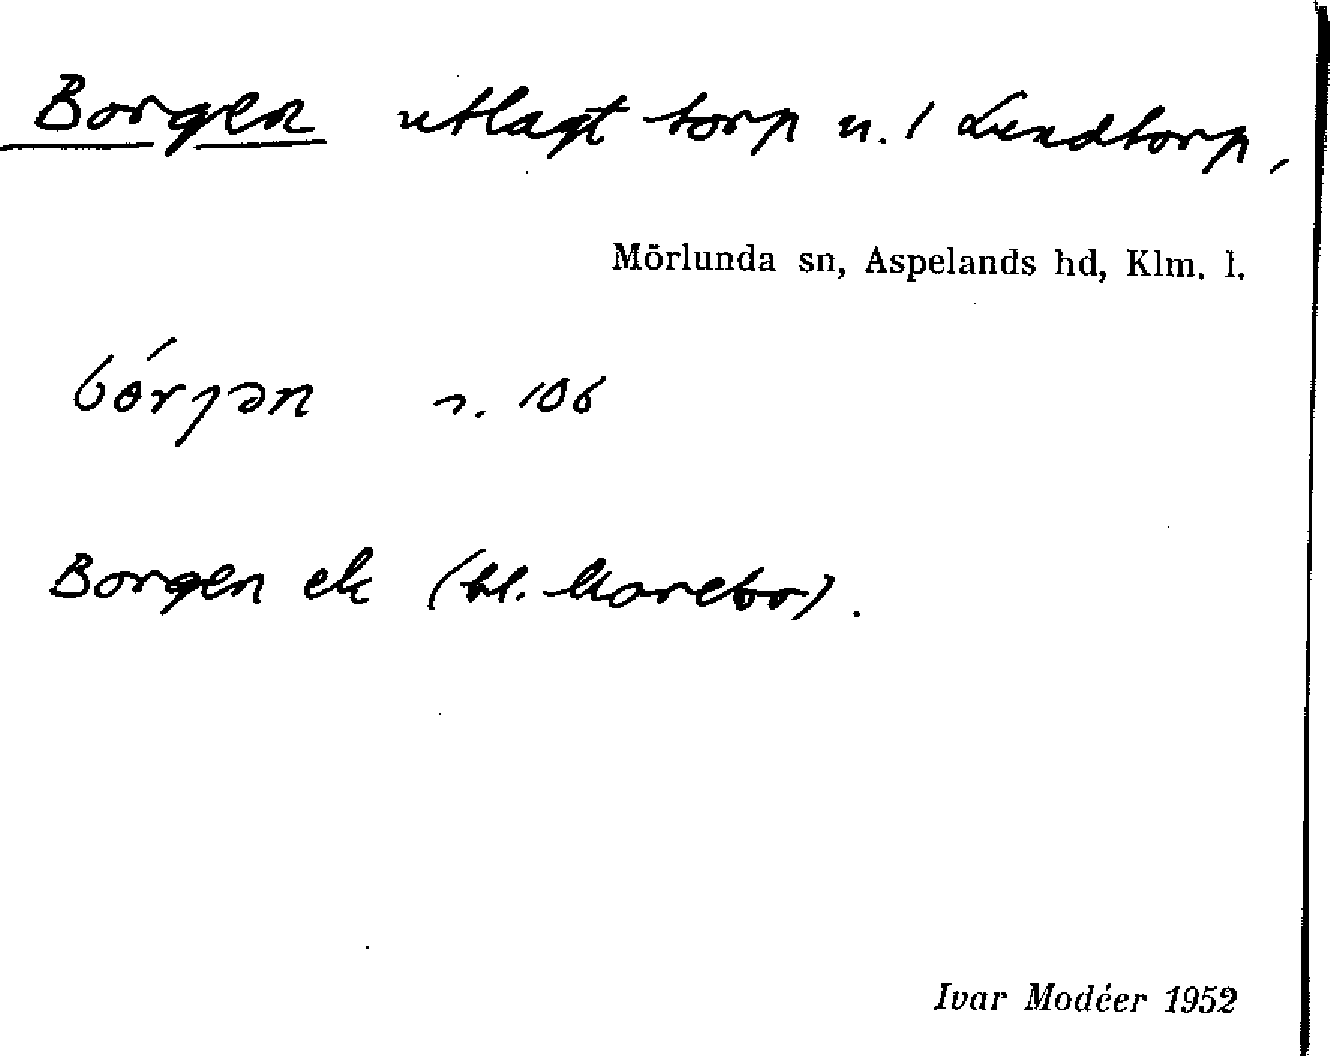 Borgen utlagt torp u. 1 Lindtorp,
Mörlunda sn, Aspelands hd, Klm. l.
bórjən s. 106
Borgen ek (bl.
Ivar Modéer 1952